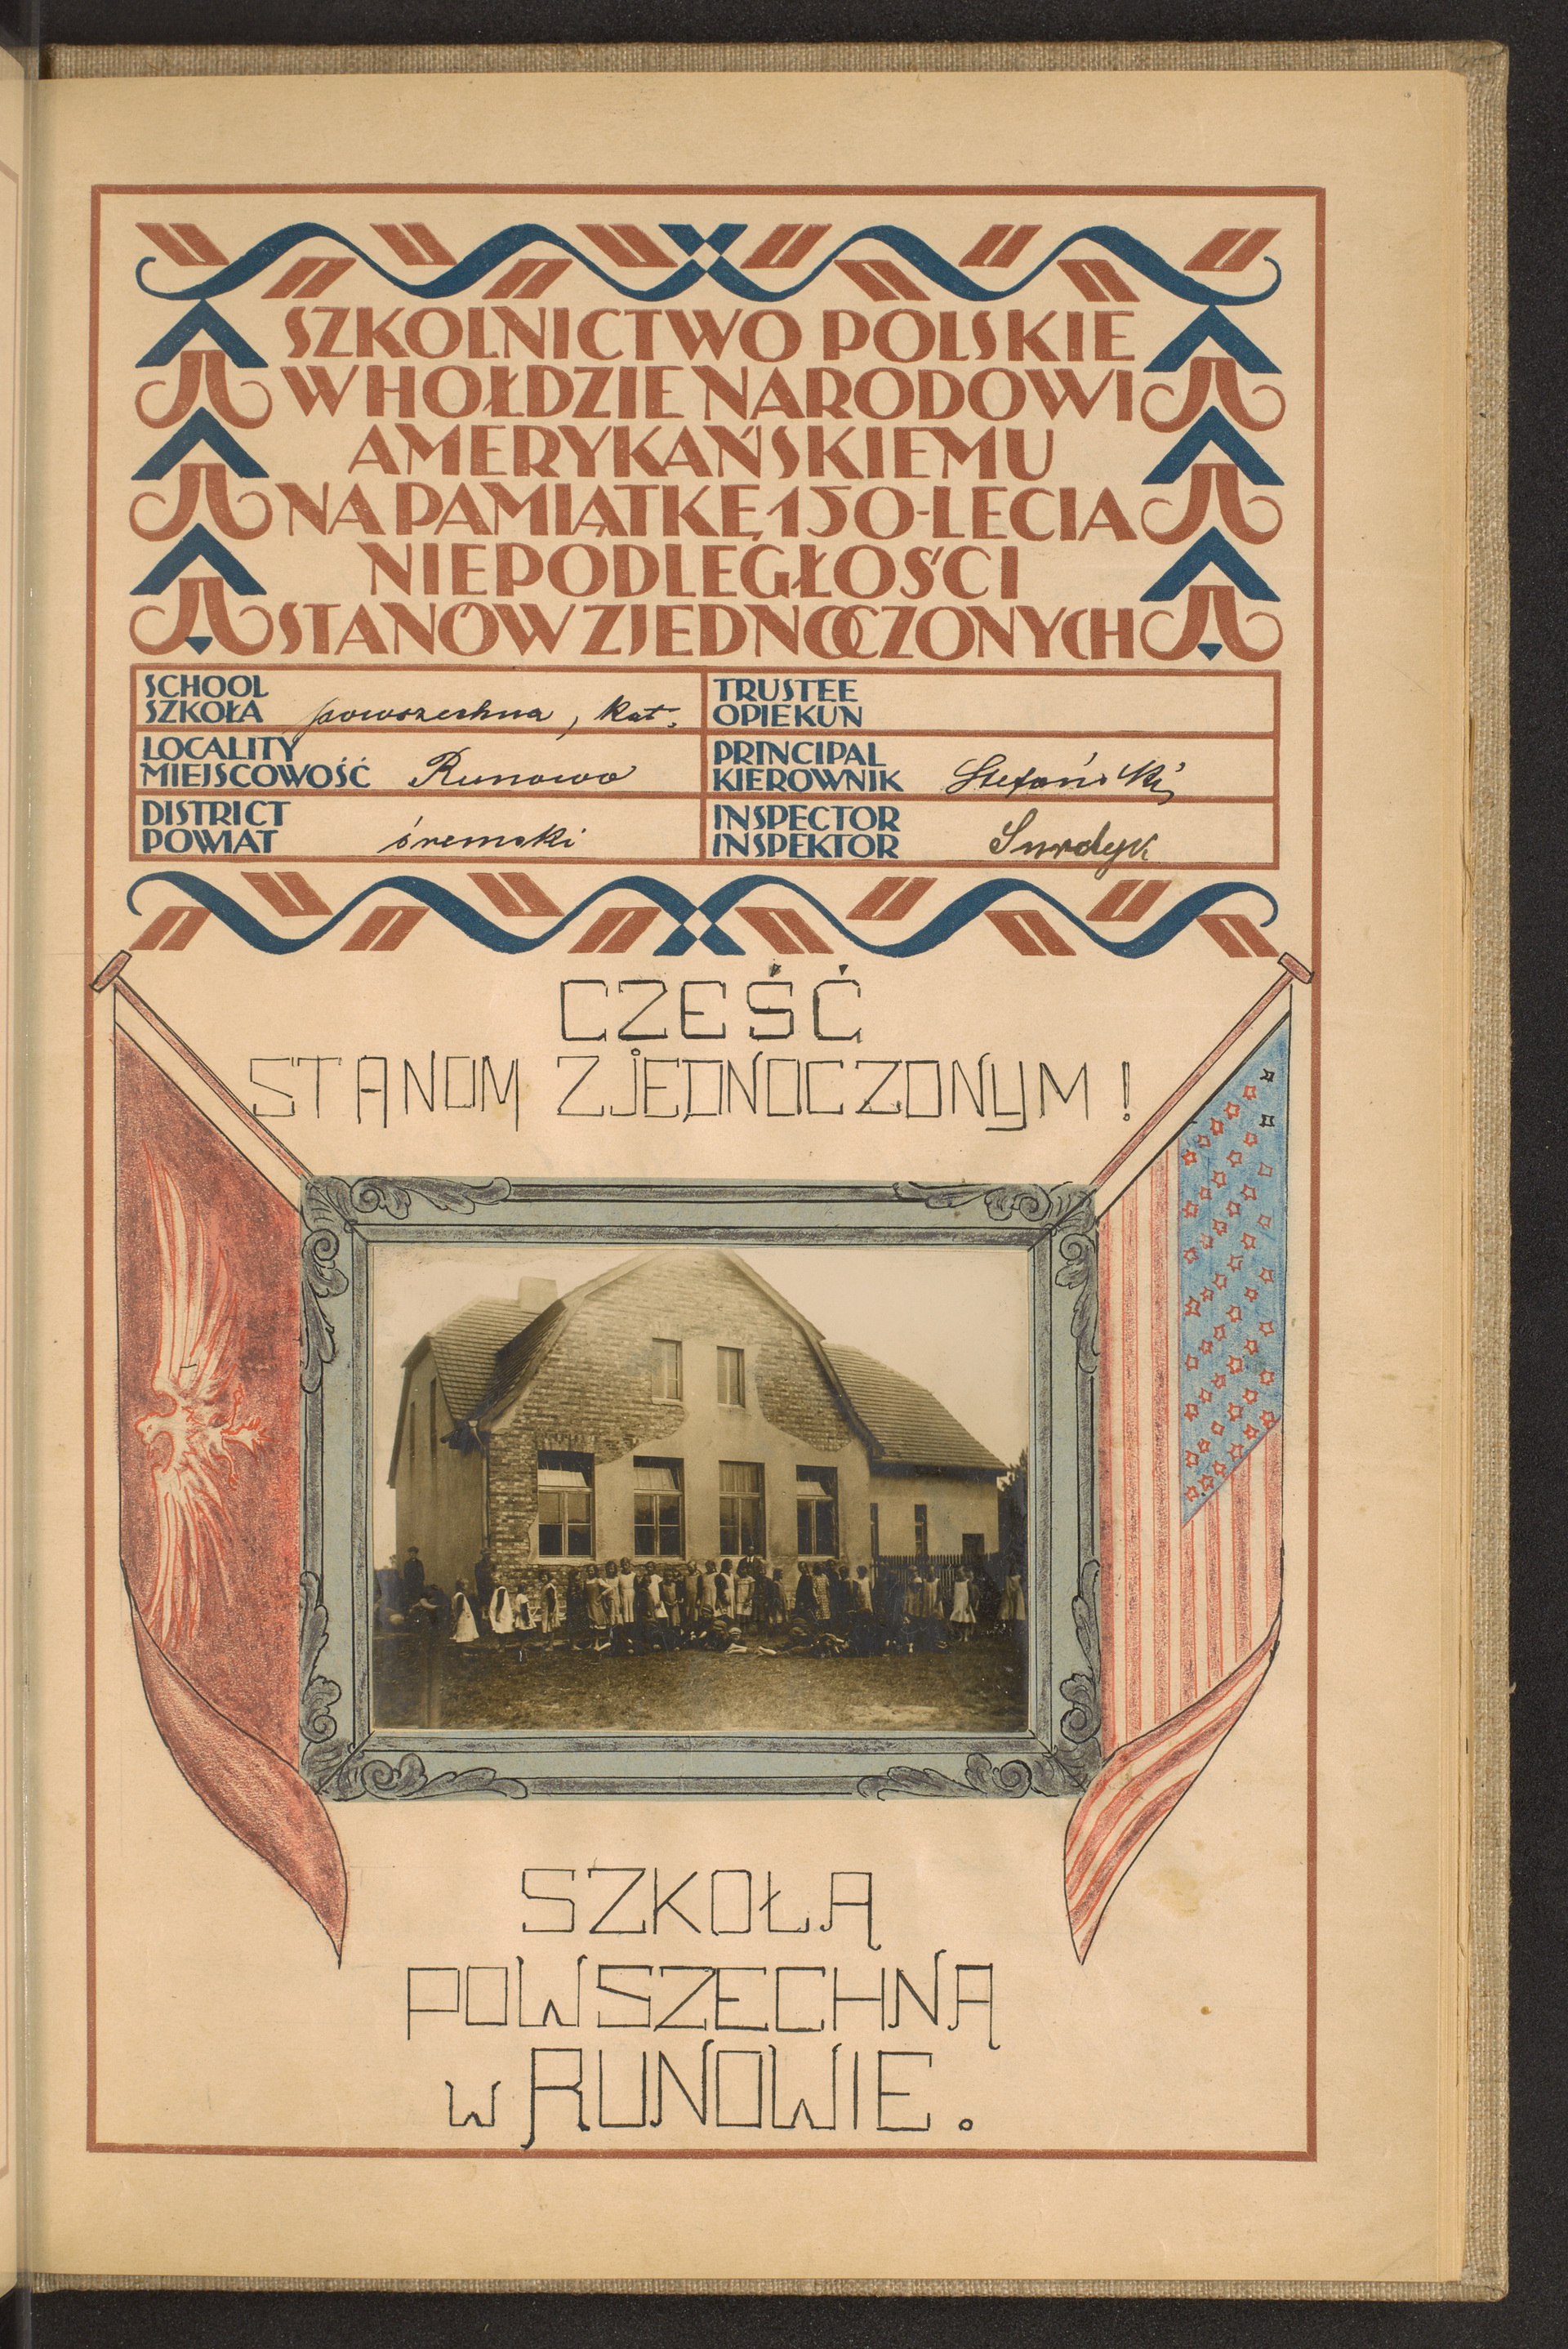 SZKOLNICTWO POLSKIE
W HOŁDZIE NARODOWI
AMERYKAŃSKIEMU
NA PAMIĄTKĘ 150-LECIA
NIEPODLEGŁOŚCI
STANÓW ZJEDNOCZONYCH
SCHOOL
SZKOŁA powszechna, kat.
TRUSTEE
OPIEKUN
LOCALITY
MIEJSCOWOŚĆ Runowo
PRINCIPAL
KIEROWNIK Stefański
DISTRICT
POWIAT śremski
INSPECTOR
INSPEKTOR Surdyk
CZEŚĆ
STANOM ZJEDNOCZONYM!
SZKOŁA
POWSZECHNA
w RUNOWIE.